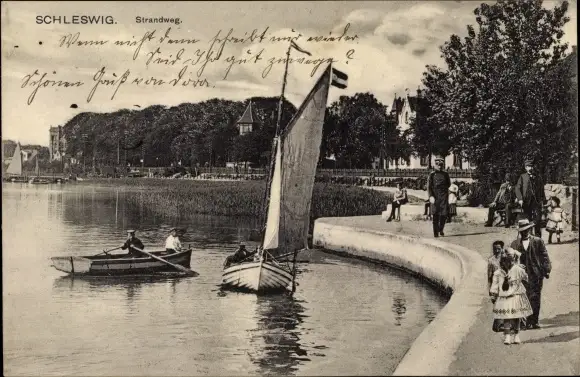 SCHLESWIG. Strandweg.
Wenn nicht dann schreibt mir wieder
Seid Ihr gut zuwege?
Schönen Gruß von Dora.